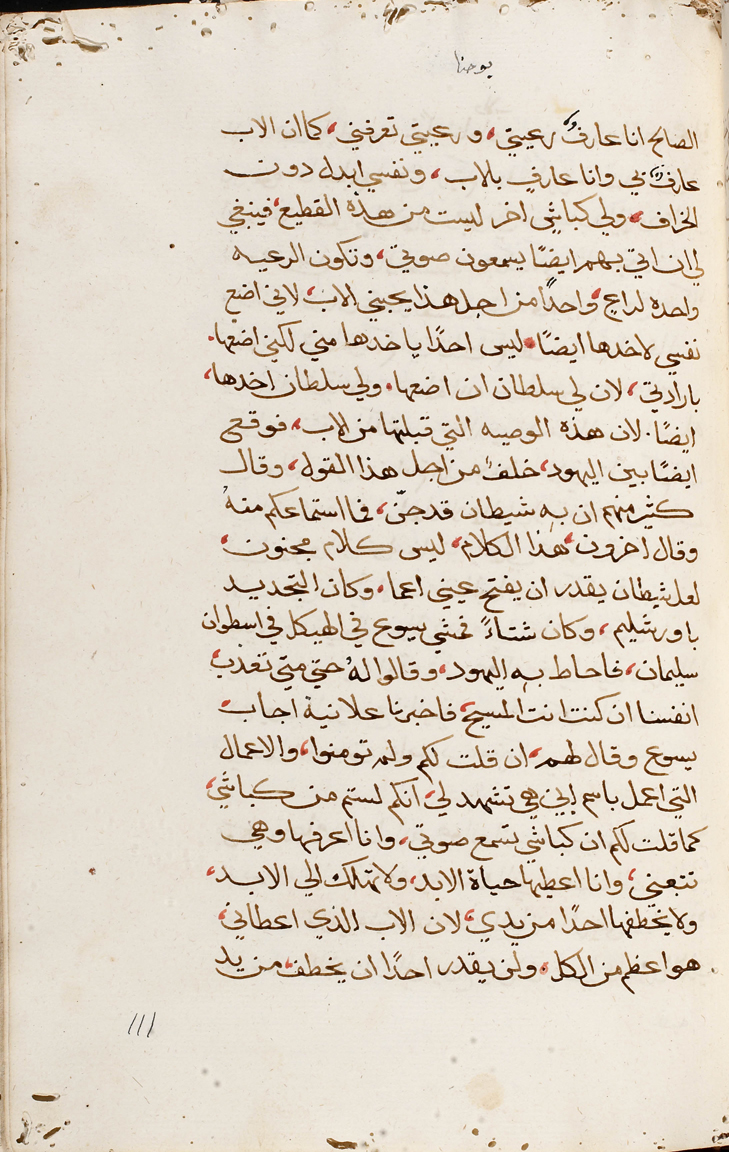 يوحنا
الصالح انا عارف رعيتي، ورعيتي تعرفني، كما ان الاب
عارف بي وانا عارفي بالاب، ونفسي ابدل دون
الخراف، ولي كباشي اخر ليست من هذه القطيع، فينبغي
لي ان اتي بهم ايضًا يسمعون صوتي، وتكون الرعيه
واحده لراعٍ واحدًا من اجل هذا يحبني الاب، لاني اضع
نفسي لاخدها ايضًا، ليس احدًا ياخدها مني لكني اضعها.
بارادتي، لان لي سلطان ان اضعها. ولي سلطان اخدها،
ايضًا. لان هذه الوصيه التي قبلتها من الاب، فوقع
ايضًا بين اليهود، خلف من اجل هذا القول، وقال
كثير منهم ان به شيطان قد جنّ، فما استماعكم منهُ
وقال اخرون هذا الكلام، ليس كلام مجنون،
لعل شيطان يقدر ان يفتح عيني اعما، وكان التجديد
باورشليم، وكان شتاءً فمشي يسوع في الهيكل في اسطوان
سليمان، فاحاط به اليهود، وقالوا لهُ حتي متي تعذب
انفسنا ان كنت انت المسيح، فاخبرنا علانية اجاب
يسوع وقال لهم، ان قلت لكم ولم تومنوا، والاعمال
التي اعمل باسم ابي هي تشهد لي، انكم لستم من كباشي،
كما قلت لكم ان كباشي تسمع صوتي، وانا اعرفها وهي
تتبعني، وانا اعطيها حياة الابد، ولا تهلك الي الابد،
ولا يخطفها احدًا من يدي، لان الاب الذي اعطاني،
هو اعظم من الكل، ولن يقدر احدًا ان يخطف من يد
111